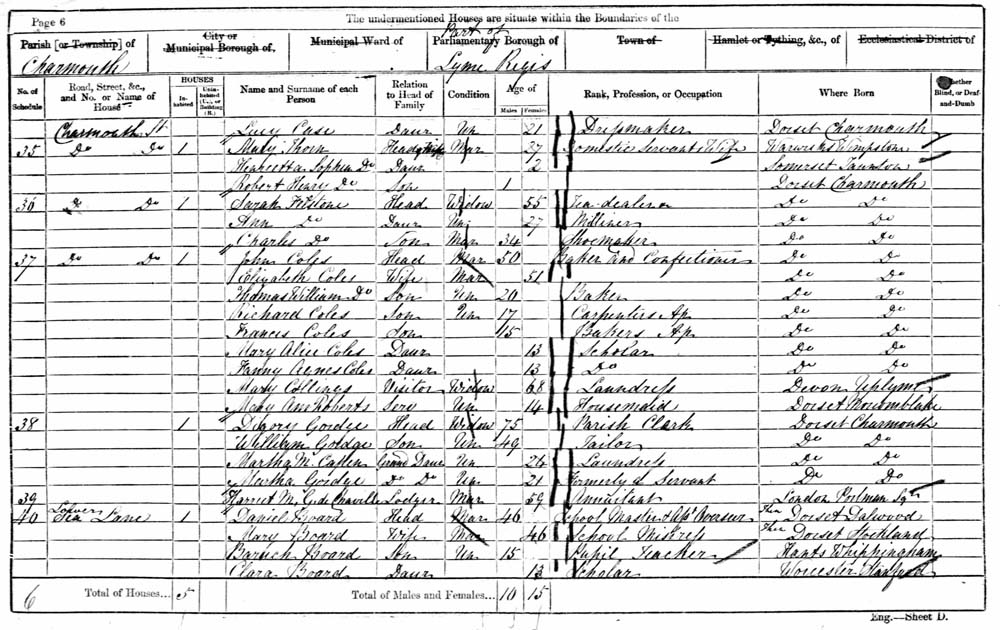 Page 6
The undermentioned Houses are situate within the Boundaries of the
Parish [or Township] of
City or Municipal Borough of.
Municipal Ward of
Part of
Parliamentary Borough of
Town of
Hamlet or Tything, &c., of
Ecclesiastical District of
Charmouth
Lyme Regis
No. of Schedule
Road, Street, &c., and No. or Name of House
HOUSES
Inhabited
Uninhabited (U.), or Building (B.)
Name and Surname of each Person
Relation to Head of Family
Condition
Age of
Males
Females
Rank, Profession, or Occupation
Where Born
Whether Blind, or Deaf-and-Dumb
Charmouth St Lucy Case Daur Un 21 Dressmaker Dorset Charmouth
35 Do Do 1 Mary Thorn Mar Domestic Servants Wife
Henrietta Sophia Do Daur 2 Somerset Taunton
Robert Henry Do Son 1 Dorset Charmouth
36 Do Do 1 Sarah Head Widow 55 Tea dealer Do Do
Ann Do Daur Un 27 Milliner Do Do
Charles Do Son Mar 34 Shoemaker Do Do
37 Do Do 1 John Coles Head Mar 50 Baker and Confectioner Do Do
Elizabeth Coles Wife Mar 51 Do Do
Thomas William Do Son Un 20 Baker Do Do
Richard Coles Son Un 17 Carpenters Ap Do Do
Francis Coles Son 15 Bakers Ap Do Do
Mary Alice Coles Daur 13 Scholar Do Do
Fanny Agnes Coles Daur 13 Do Do Do
Mary Collings Visitor Widow 68 Laundress Devon Uplyme
Mary Ann Roberts Serv Un 14 Housemaid Dorset
38 1 Head Widow 75 Parish Clark Dorset Charmouth
William Son Un 49 Tailor Do Do
Martha M. Grand Daur Un 24 Laundress Do Do
Martha Do Do Un 21 Formerly a Servant Do Do
39 Harriet M. Lodger Mar 59 Annuitant London Portman Sqre
40 Lower Sea Lane 1 Daniel Board Head Mar 46 School Master & Overseer Dorset Dalwood
Mary Board Wife Mar 46 School Mistress Dorset Stockland
Baruch Board Son Un 15 Pupil Teacher Hants Whippingham
Clara Board Daur 13 Scholar Worcester
6 Total of Houses... 5 Total of Males and Females... 10 15
Eng.—Sheet D.